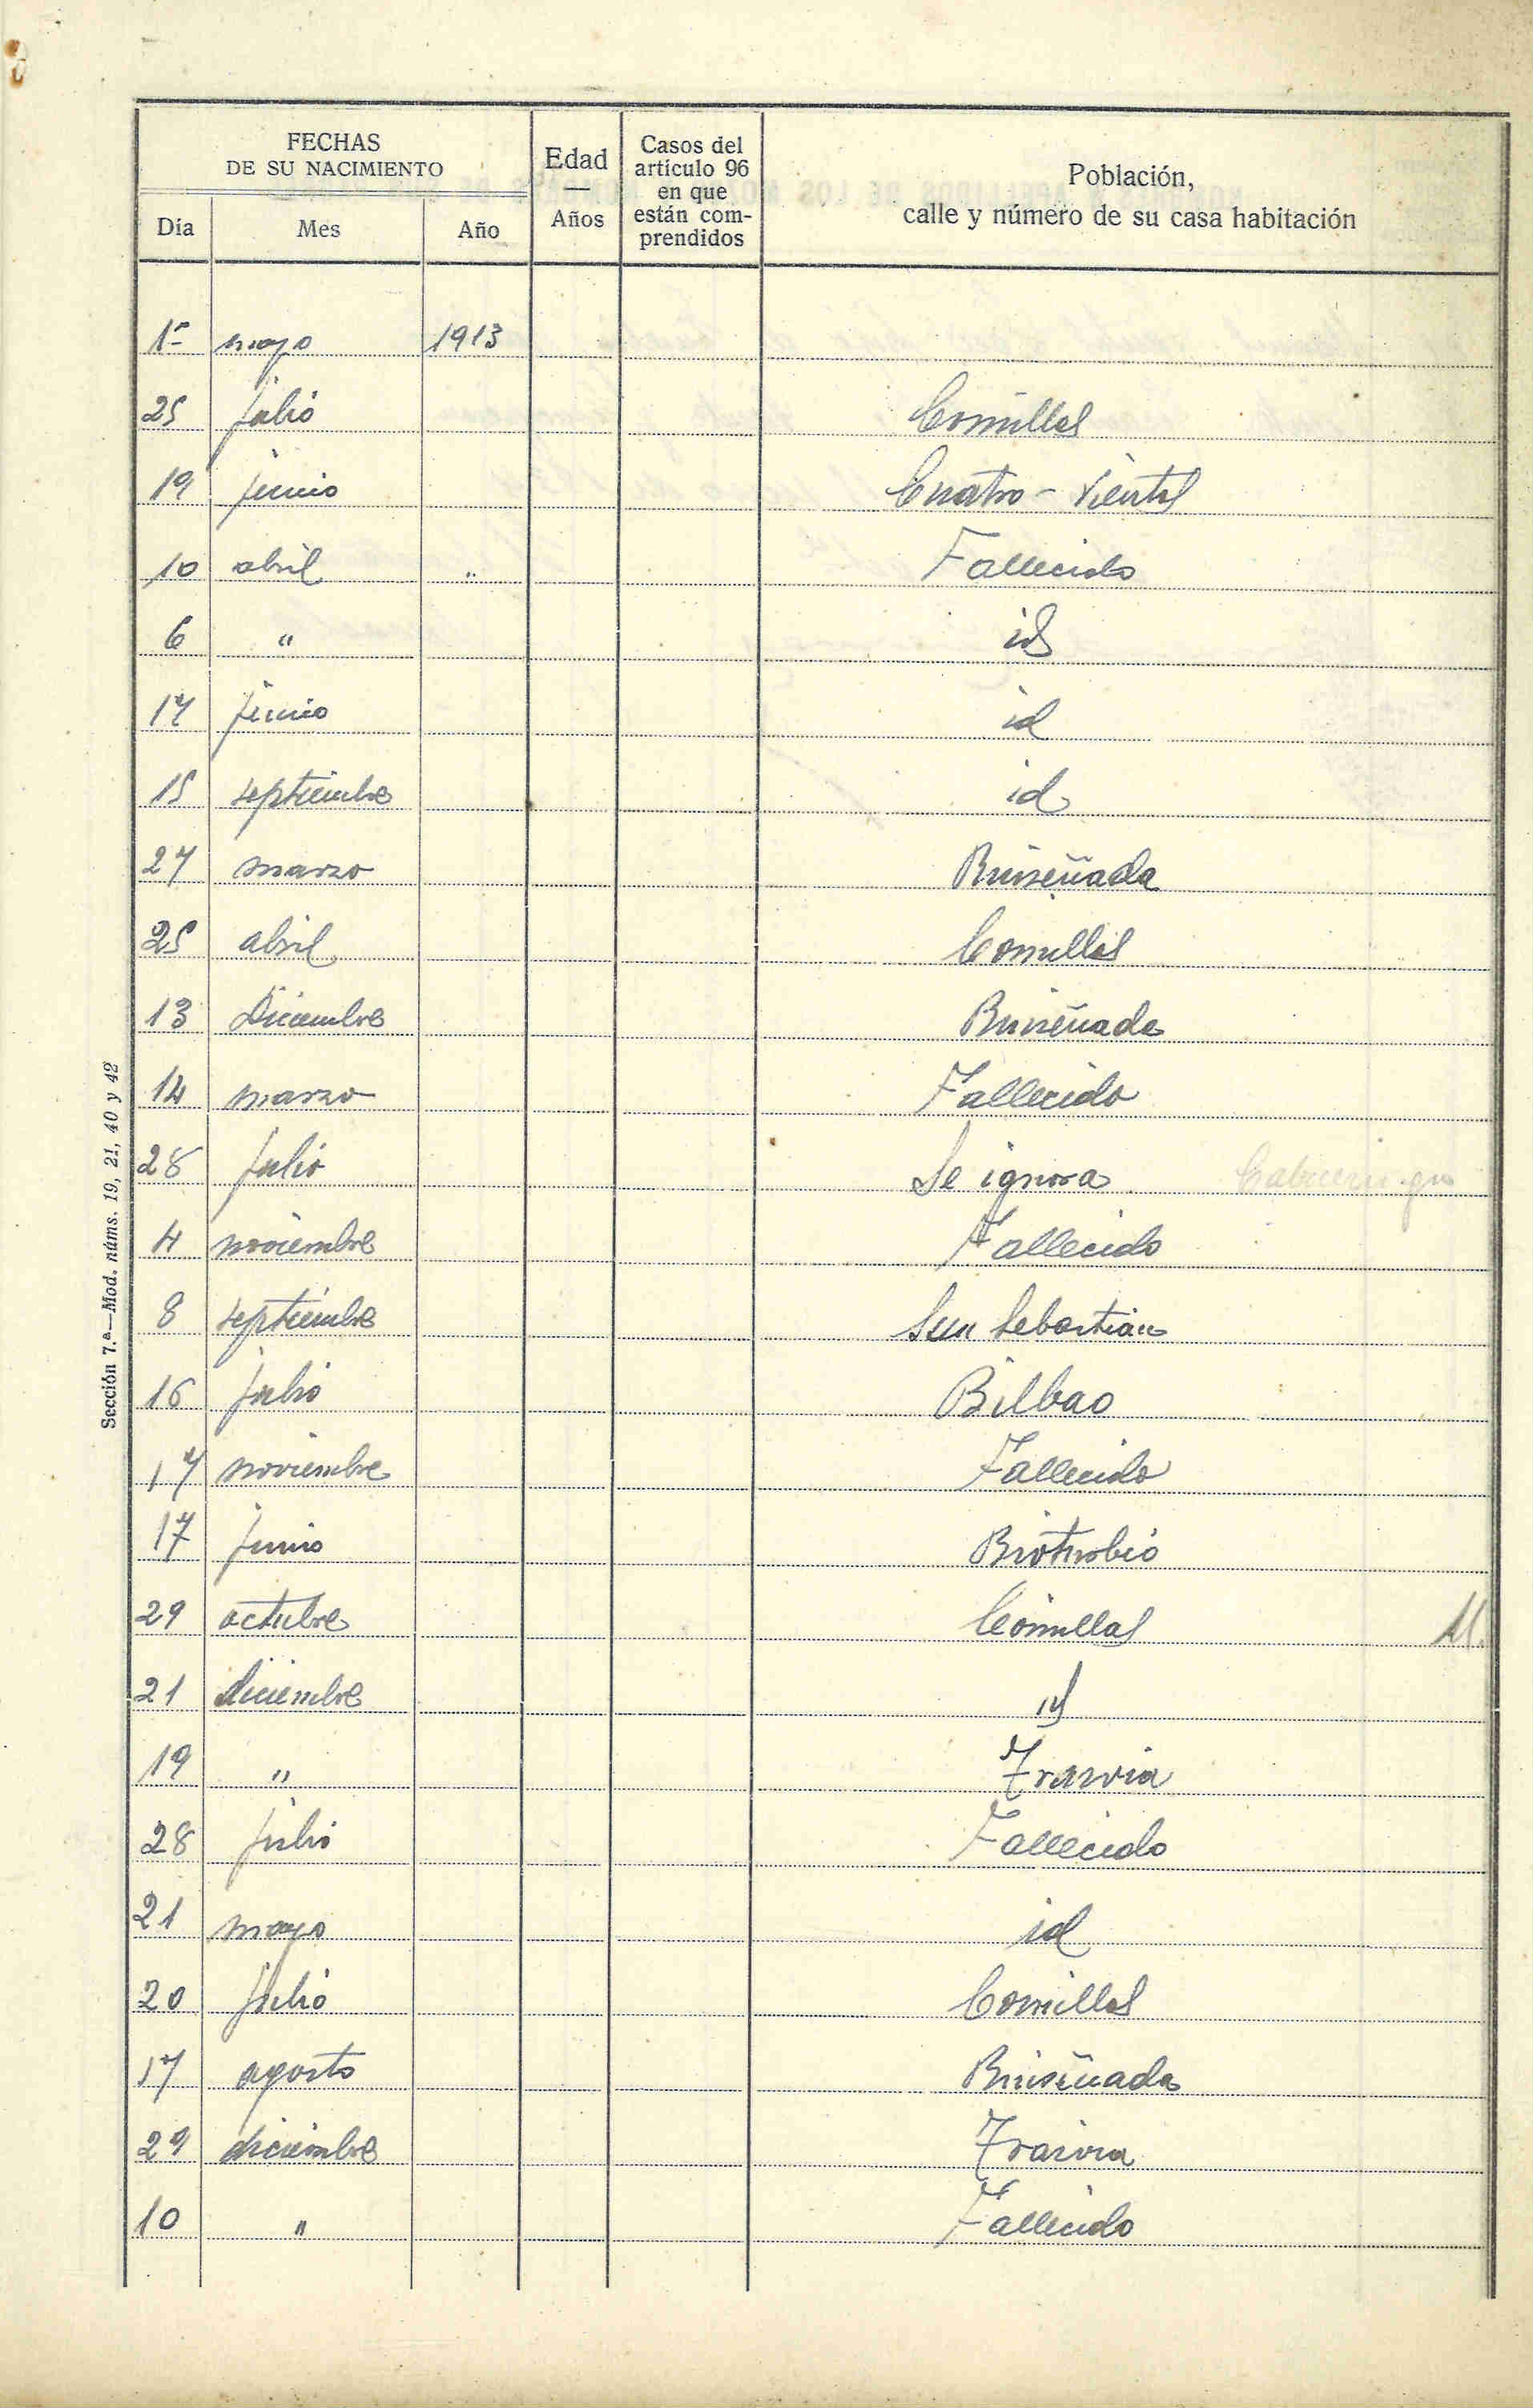 FECHAS
DE SU NACIMIENTO
Edad
—
Años
Casos del
artículo 96
en que
están com-
prendidos
Población,
calle y número de su casa habitación
Día Mes Año
1º mayo 1913
25 julio Comillas
19 junio Cuatro-Vientos
10 abril " Fallecido
6 " id
17 junio id
15 septiembre id
27 marzo Ruiseñada
25 abril Comillas
13 Diciembre Ruiseñada
14 marzo Fallecido
28 julio Se ignora
4 noviembre Fallecido
8 septiembre San Sebastian
16 julio Bilbao
17 noviembre Fallecido
17 junio Rioturbio
29 octubre Comillas
21 diciembre id
19 " Trasvia
28 julio Fallecido
21 mayo id
20 julio Comillas
17 agosto Ruiseñada
29 diciembre Trasvia
10 " Fallecido
Sección 7.ª—Mod. núms. 19, 21, 40 y 42